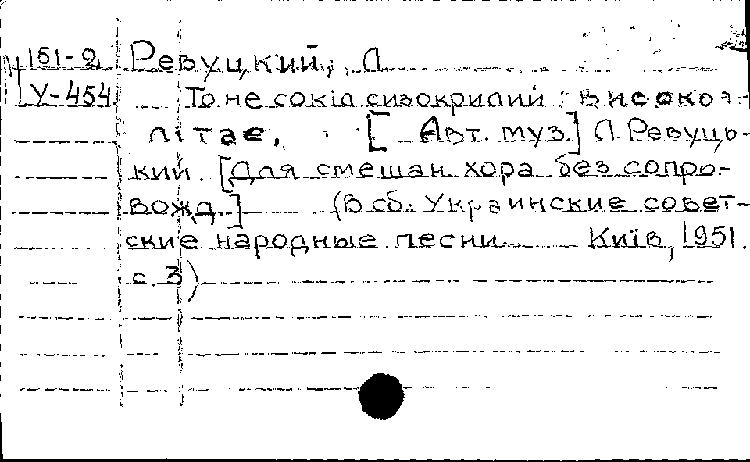 151-2 Ревуцкий, Л
У-454 То не сокіл сизокрилий високо
літае. [Авт. муз.] Л. Ревуць-
кий. [Для смешан. хора без сопро-
вожд.] (В сб.: Украинские совет-
ские народные песни. Київ, 1951.
с. 3)